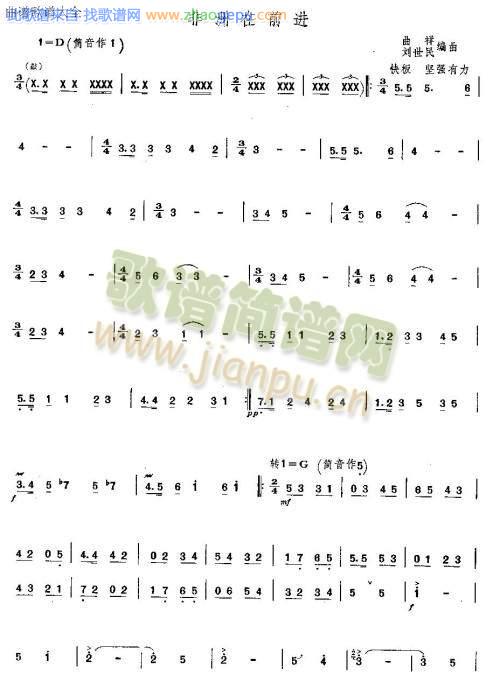 此歌谱来自 找歌谱网 www.zhaogepu.com
前进
1=D（筒音作1） 曲祥 编曲
刘世民
快板 坚强有力
（鼓）
3/4 (X.X XX XXXX | X.X XX XXXX | 2/4 XXX XXX | XXX XXX) |: 3/4 5.5 5. 6
4 - - | 4/4 3.3 3 3 4 2 | 3/4 3 - - | 5.5 5. 6 | 4 - -
4/4 3.3 3 3 4 2 | 3/4 3 - - | 3 4 5 - | 4/4 5 6 4 4
3/4 2 3 4 - | 4/4 5 6 3 3 | 3/4 3 4 5 - | 4/4 5 6 4 4
3/4 2 3 4 - | 4/4 2 3 1 1 | 5.5 1 1 2 3 | 1.2 3 3 4 5
5.5 1 1 2 3 | 4.4 2 2 3 1 :| 7.1 2 4 2 4 | 1.2 3 5 3 5
pp.
转1=G（筒音作5）
3.4 5 b7 5 b7 | 4.5 6 i 6 i |: 2/4 5 3 3 1 | 0 3 6 5 4 5
f mf
4 2 0 5 | 4.4 4 2 | 0 2 3 4 | 1 7 6 5 | 5.5 5 3 | 0 1 2 3
4 3 2 1 | 7 2 0 2 | 0 6 5 4 | 3 2 1 7 6 5 | 5 5 | i -
f
5 i | 2 - | 2 5 | 5 4 | 3 - | 3 5
歌谱简谱网
www.jianpu.cn